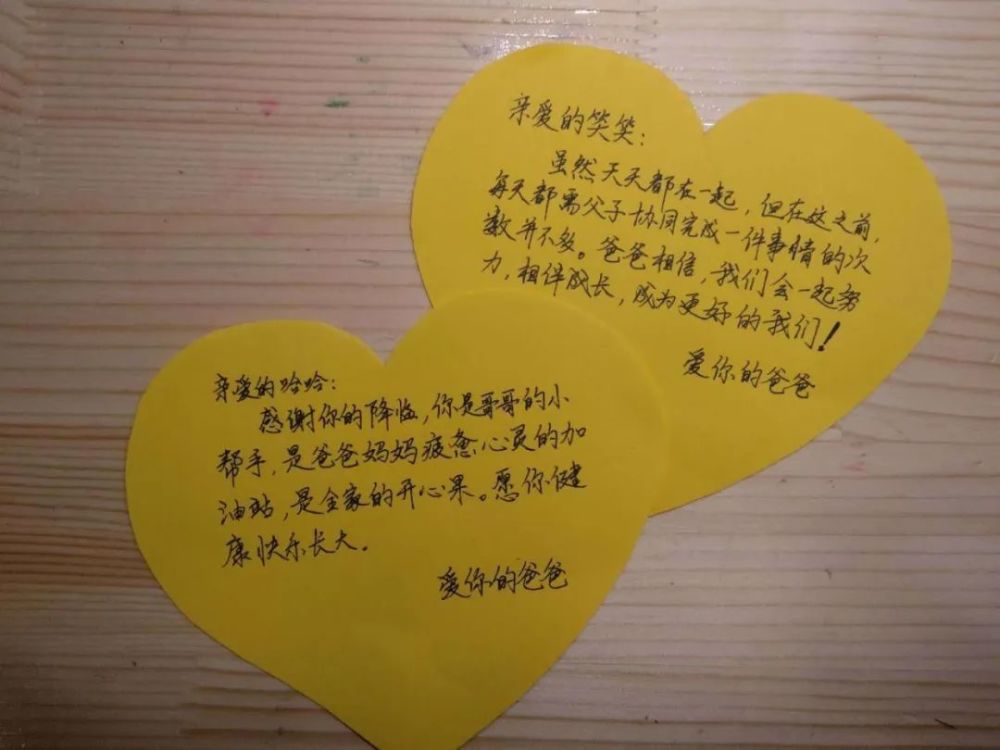 亲爱的笑笑：
虽然天天都在一起，但在这之前，
每天都需父子协同完成一件事情的次
数并不多。爸爸相信，我们会一起努
力，相伴成长，成为更好的我们！
爱你的爸爸
亲爱的哈哈：
感谢你的降临，你是哥哥的小
帮手，是爸爸妈妈疲惫心灵的加
油站，是全家的开心果。愿你健
康快乐长大。
爱你的爸爸